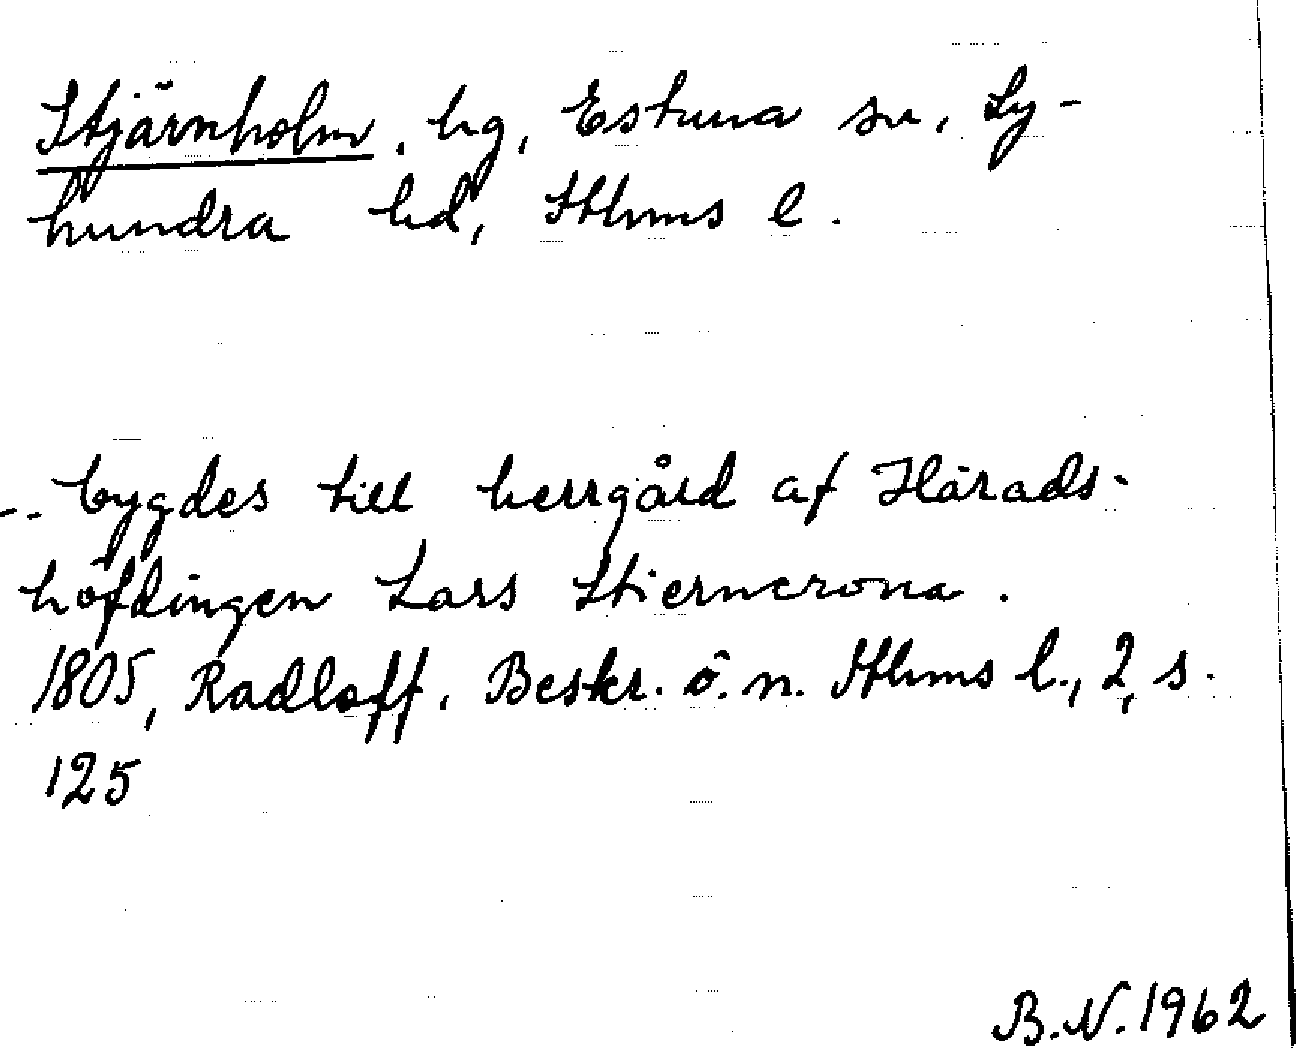 Stjärnholm, hg, Estuna sn, Ly-
hundra hd, Sthms l.
-- bygdes till herrgård af Härads-
höfdingen Lars Stiernerona.
1805, Radloff, Beskr. ö. n. Sthms l., 2, s.
125
B.N. 1962